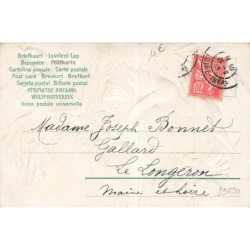 Briefkaart Levelező-Lap
Dopisnice Postkarte
Cartolina postale Carte postale
Post card Brevkort Brefkort
Tarjeta postal Bilhete postal
ОТКРЫТОЕ ПИСЬМО
WELTPOSTVEREIN
Union postale universelle
10
Madame Joseph Bonnet
Gallard
Le Longeron
Maine et Loire